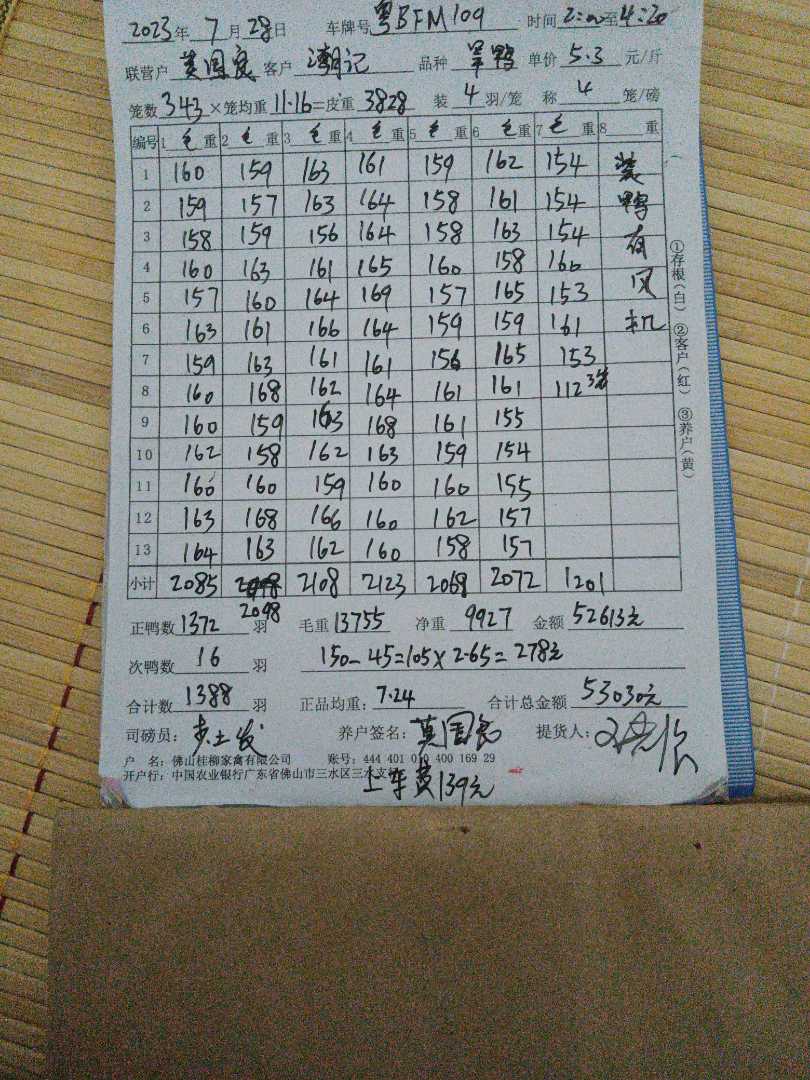 2023年 7月28日 车牌号 粤BFM109 时间 2:00至4:20
联营户 莫国良 客户 潮记 品种 羊鸭 单价 5.3 元/斤
笼数 343 ×笼均重 11.16 =皮重 3828 装 4 羽/笼 称 4 笼/磅
编号 1毛重 2毛重 3毛重 4毛重 5毛重 6毛重 7毛重 8 重
1 160 159 163 161 159 162 154 装
2 159 157 163 164 158 161 154 鸭
3 158 159 156 164 158 163 154 有
4 160 163 161 165 160 158 160 风
5 157 160 164 169 157 165 153 机
6 163 161 166 164 159 159 161
7 159 163 161 161 156 165 153
8 160 168 162 164 161 161 112 3笼
9 160 159 163 168 161 155
10 162 158 162 163 159 154
11 160 160 159 160 160 155
12 163 168 166 160 162 157
13 164 163 162 160 158 157
小计 2085 2098 2108 2123 2069 2072 1201
2098
正鸭数 1372 羽 毛重 13755 净重 9927 金额 52613元
次鸭数 16 羽 150-45=105×2.65=278元
合计数 1388 羽 正品均重: 7.24 合计总金额 53030元
司磅员: 养户签名: 莫国良 提货人:
户 名: 佛山桂柳家禽有限公司 账号: 444 401 010 400 169 29
开户行: 中国农业银行广东省佛山市三水区三水支行
上车费139元
①存根(白) ②客户(红) ③养户(黄)